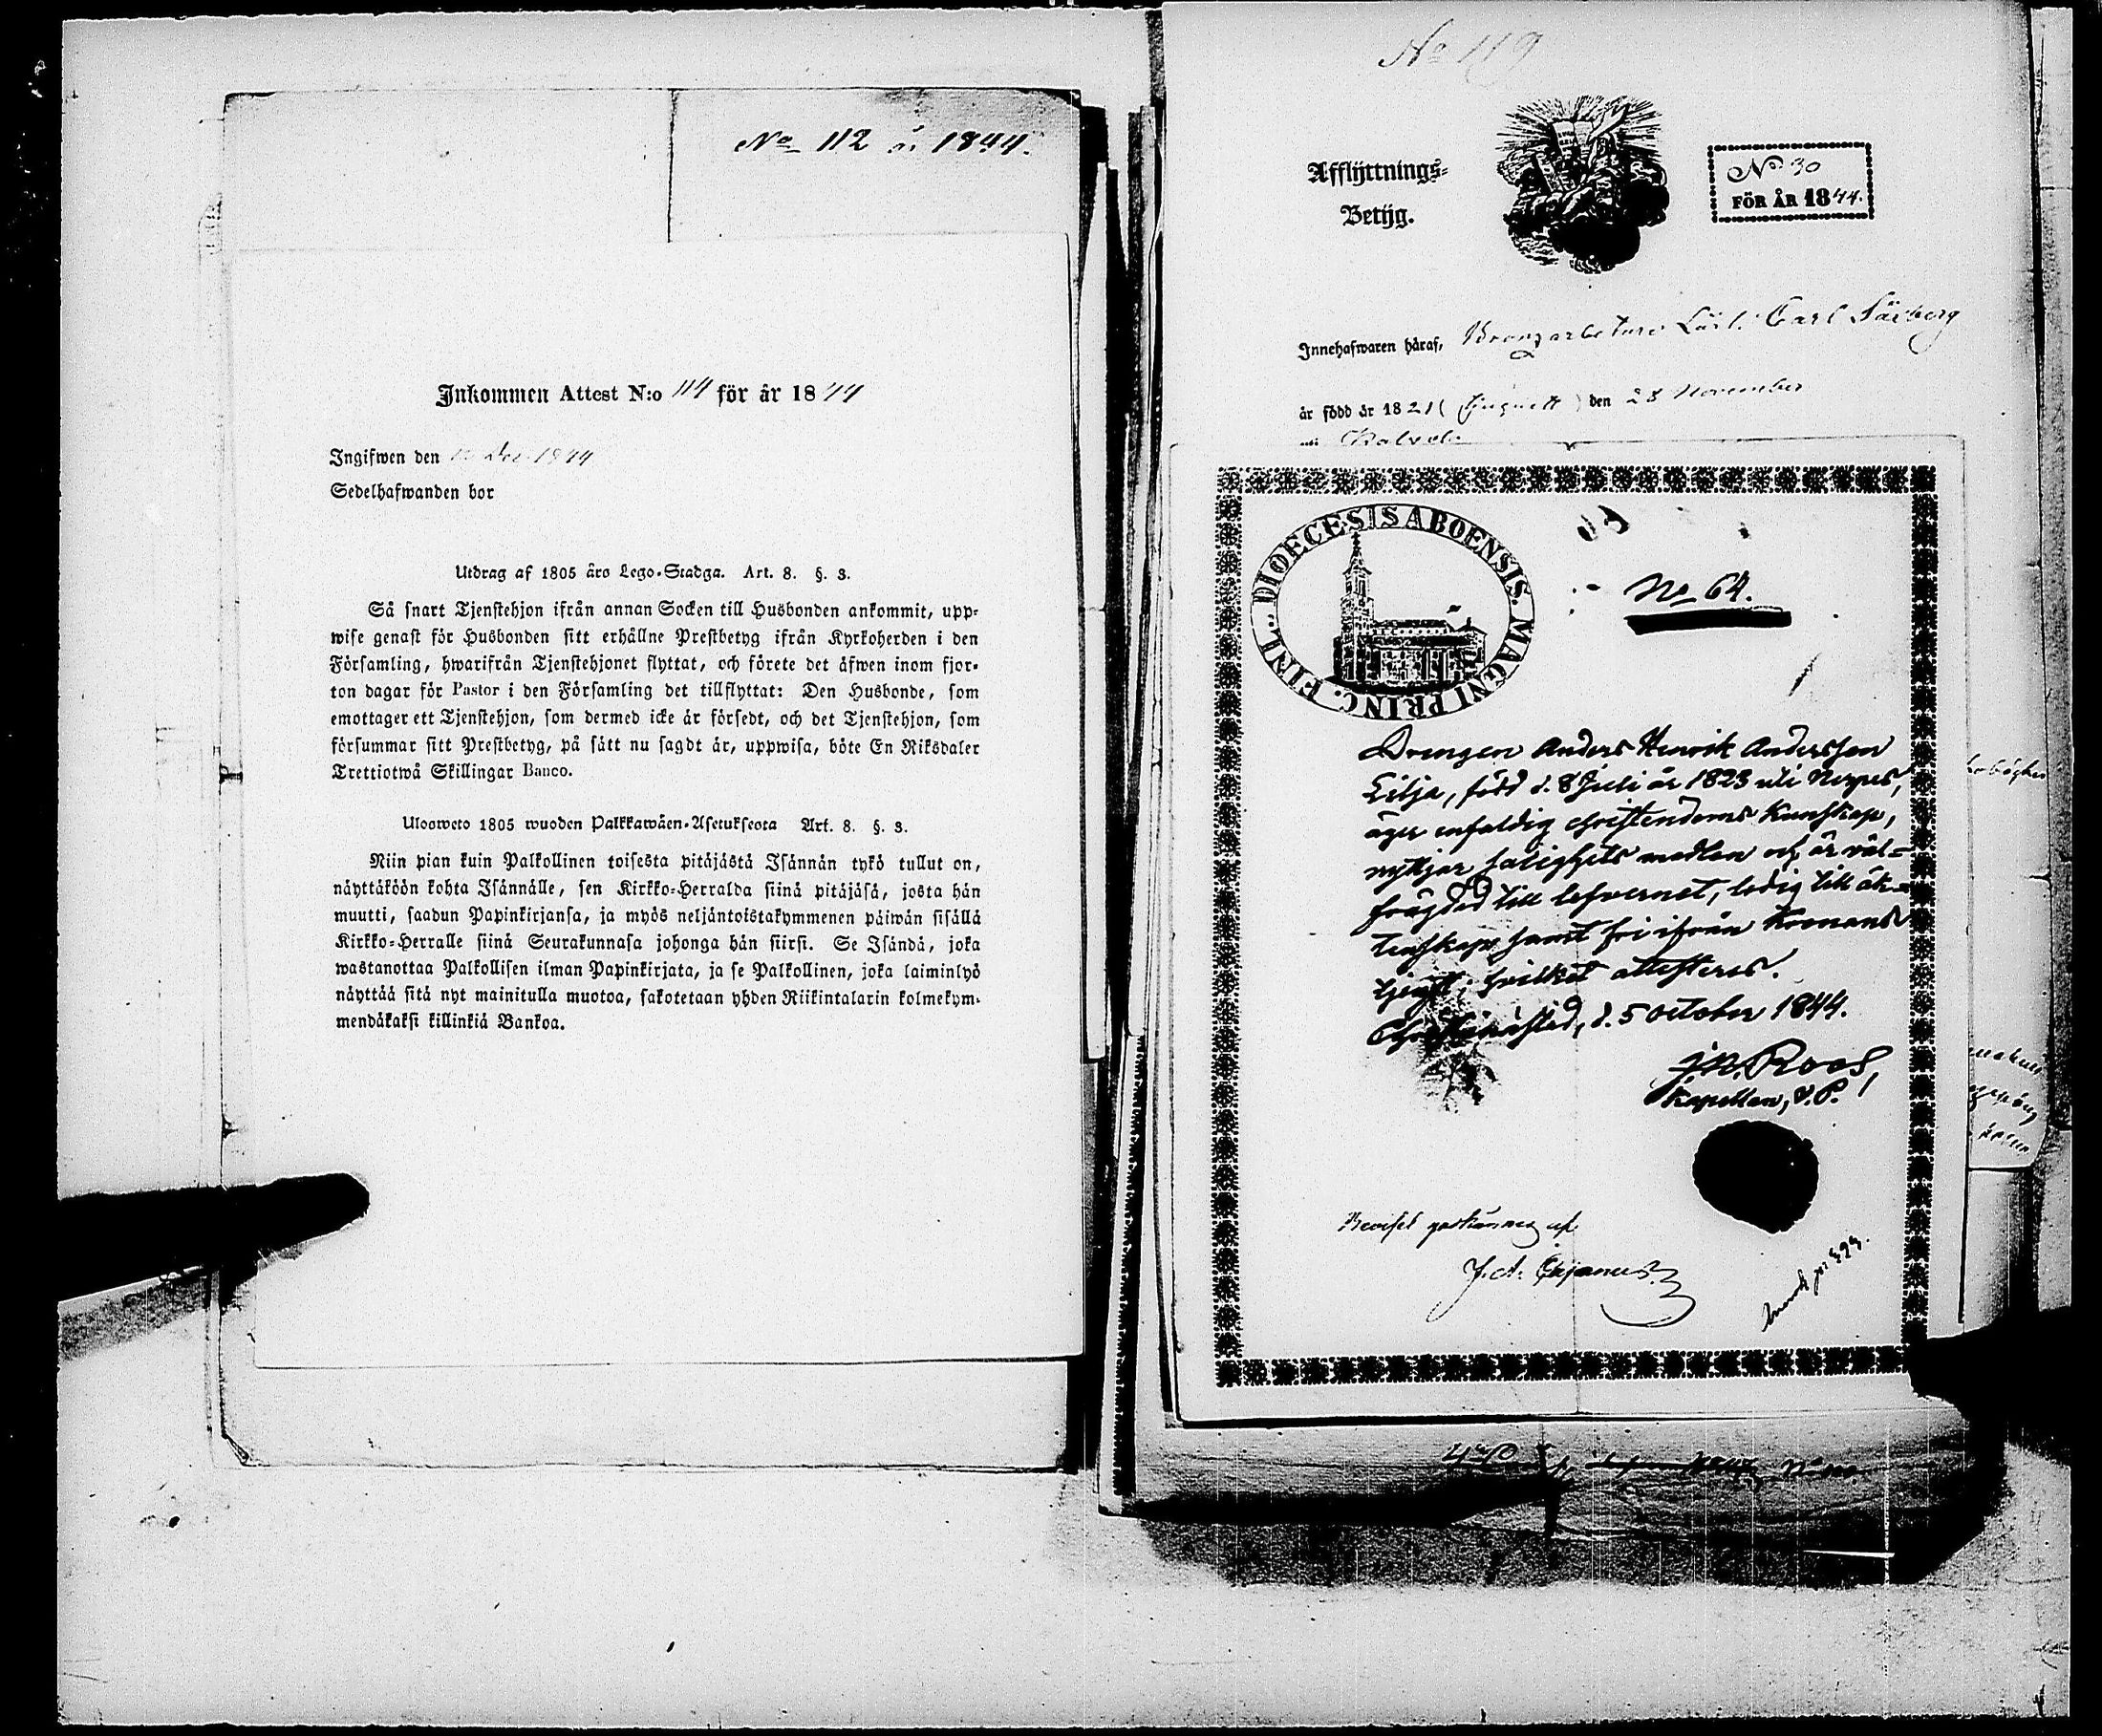 No 112 år 1844.
Inkommen Attest N:o 114 för år 1844
Ingifwen den Dec. 1844
Sedelhafwanden bor
Utdrag af 1805 års Lego-Stadga. Art. 8. §. 3.
Så snart Tjenstehjon ifrån annan Socken till Husbonden ankommit, upp-
wise genast för Husbonden sitt erhållne Prestbetyg ifrån Kyrkoherden i den
Församling, hwarifrån Tjenstehjonet flyttat, och förete det äfwen inom fjor-
ton dagar för Pastor i den Församling det tillflyttat: Den Husbonde, som
emottager ett Tjenstehjon, som dermed icke är försedt, och det Tjenstehjon, som
försummar sitt Prestbetyg, på sätt nu sagdt är, uppwisa, böte En Riksdaler
Trettiotwå Skillingar Banco.
Ulosweto 1805 wuoden Palkkawäen-Asetuksesta Art. 8. §. 3.
Niin pian kuin Palkollinen toisesta pitäjästä Isännän tykö tullut on,
näyttäköön kohta Isännälle, sen Kirkko-Herralda siinä pitäjäsä, josta hän
muutti, saadun Papinkirjansa, ja myös neljäntoistakymmenen päiwän sisällä
Kirkko-Herralle siinä Seurakunnasa johonga hän siirsi. Se Isändä, joka
wastanottaa Palkollisen ilman Papinkirjata, ja se Palkollinen, joka laiminlyö
näyttää sitä nyt mainitulla muotoa, sakotetaan yhden Riikintalarin kolmekym-
mendäkaksi killinkiä Bankoa.
No 119
Afflyttnings-
Betyg.
No 30
FÖR ÅR 1844.
Innehafwaren häraf, Bronzarbetare Lärl. Carl Säxberg
är född år 1821 ( ) den 28 November
uti
DIOECESIS ABOENSIS. MAGNI PRINC. FINL.
No 64.
Drengen Anders Henrik Andersson
Lilja, född d. 8 Juli år 1823 uti Nerpes,
äger enfaldig christendoms kunskap,
nyttjar salighets medlen och är väl-
frägdad till lefvernet, ledig till äk-
tenskap samt fri ifrån Kronans
tjenst; hvilket attesteres.
Christinæstad, d. 5 October 1844.
J. N. Roos,
Kapellan, V. P.
Beviset godkännes af